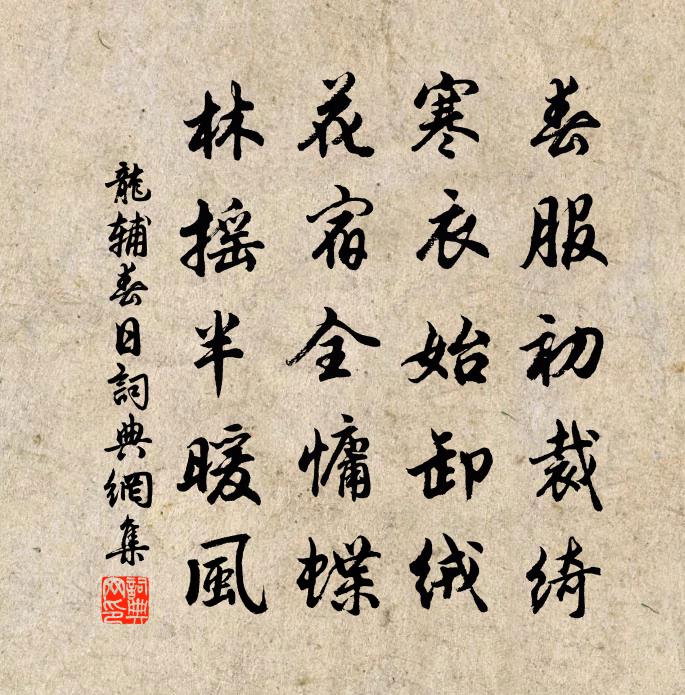 春服初裁綺
寒衣始卸絨
花宿全慵蝶
林摇半暖風
龍辅春日詞典網集
詞典網印